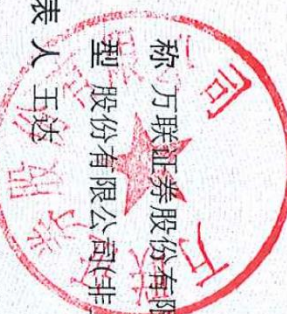 称 万联证券股份有限
型 股份有限公司(非
表人 王达